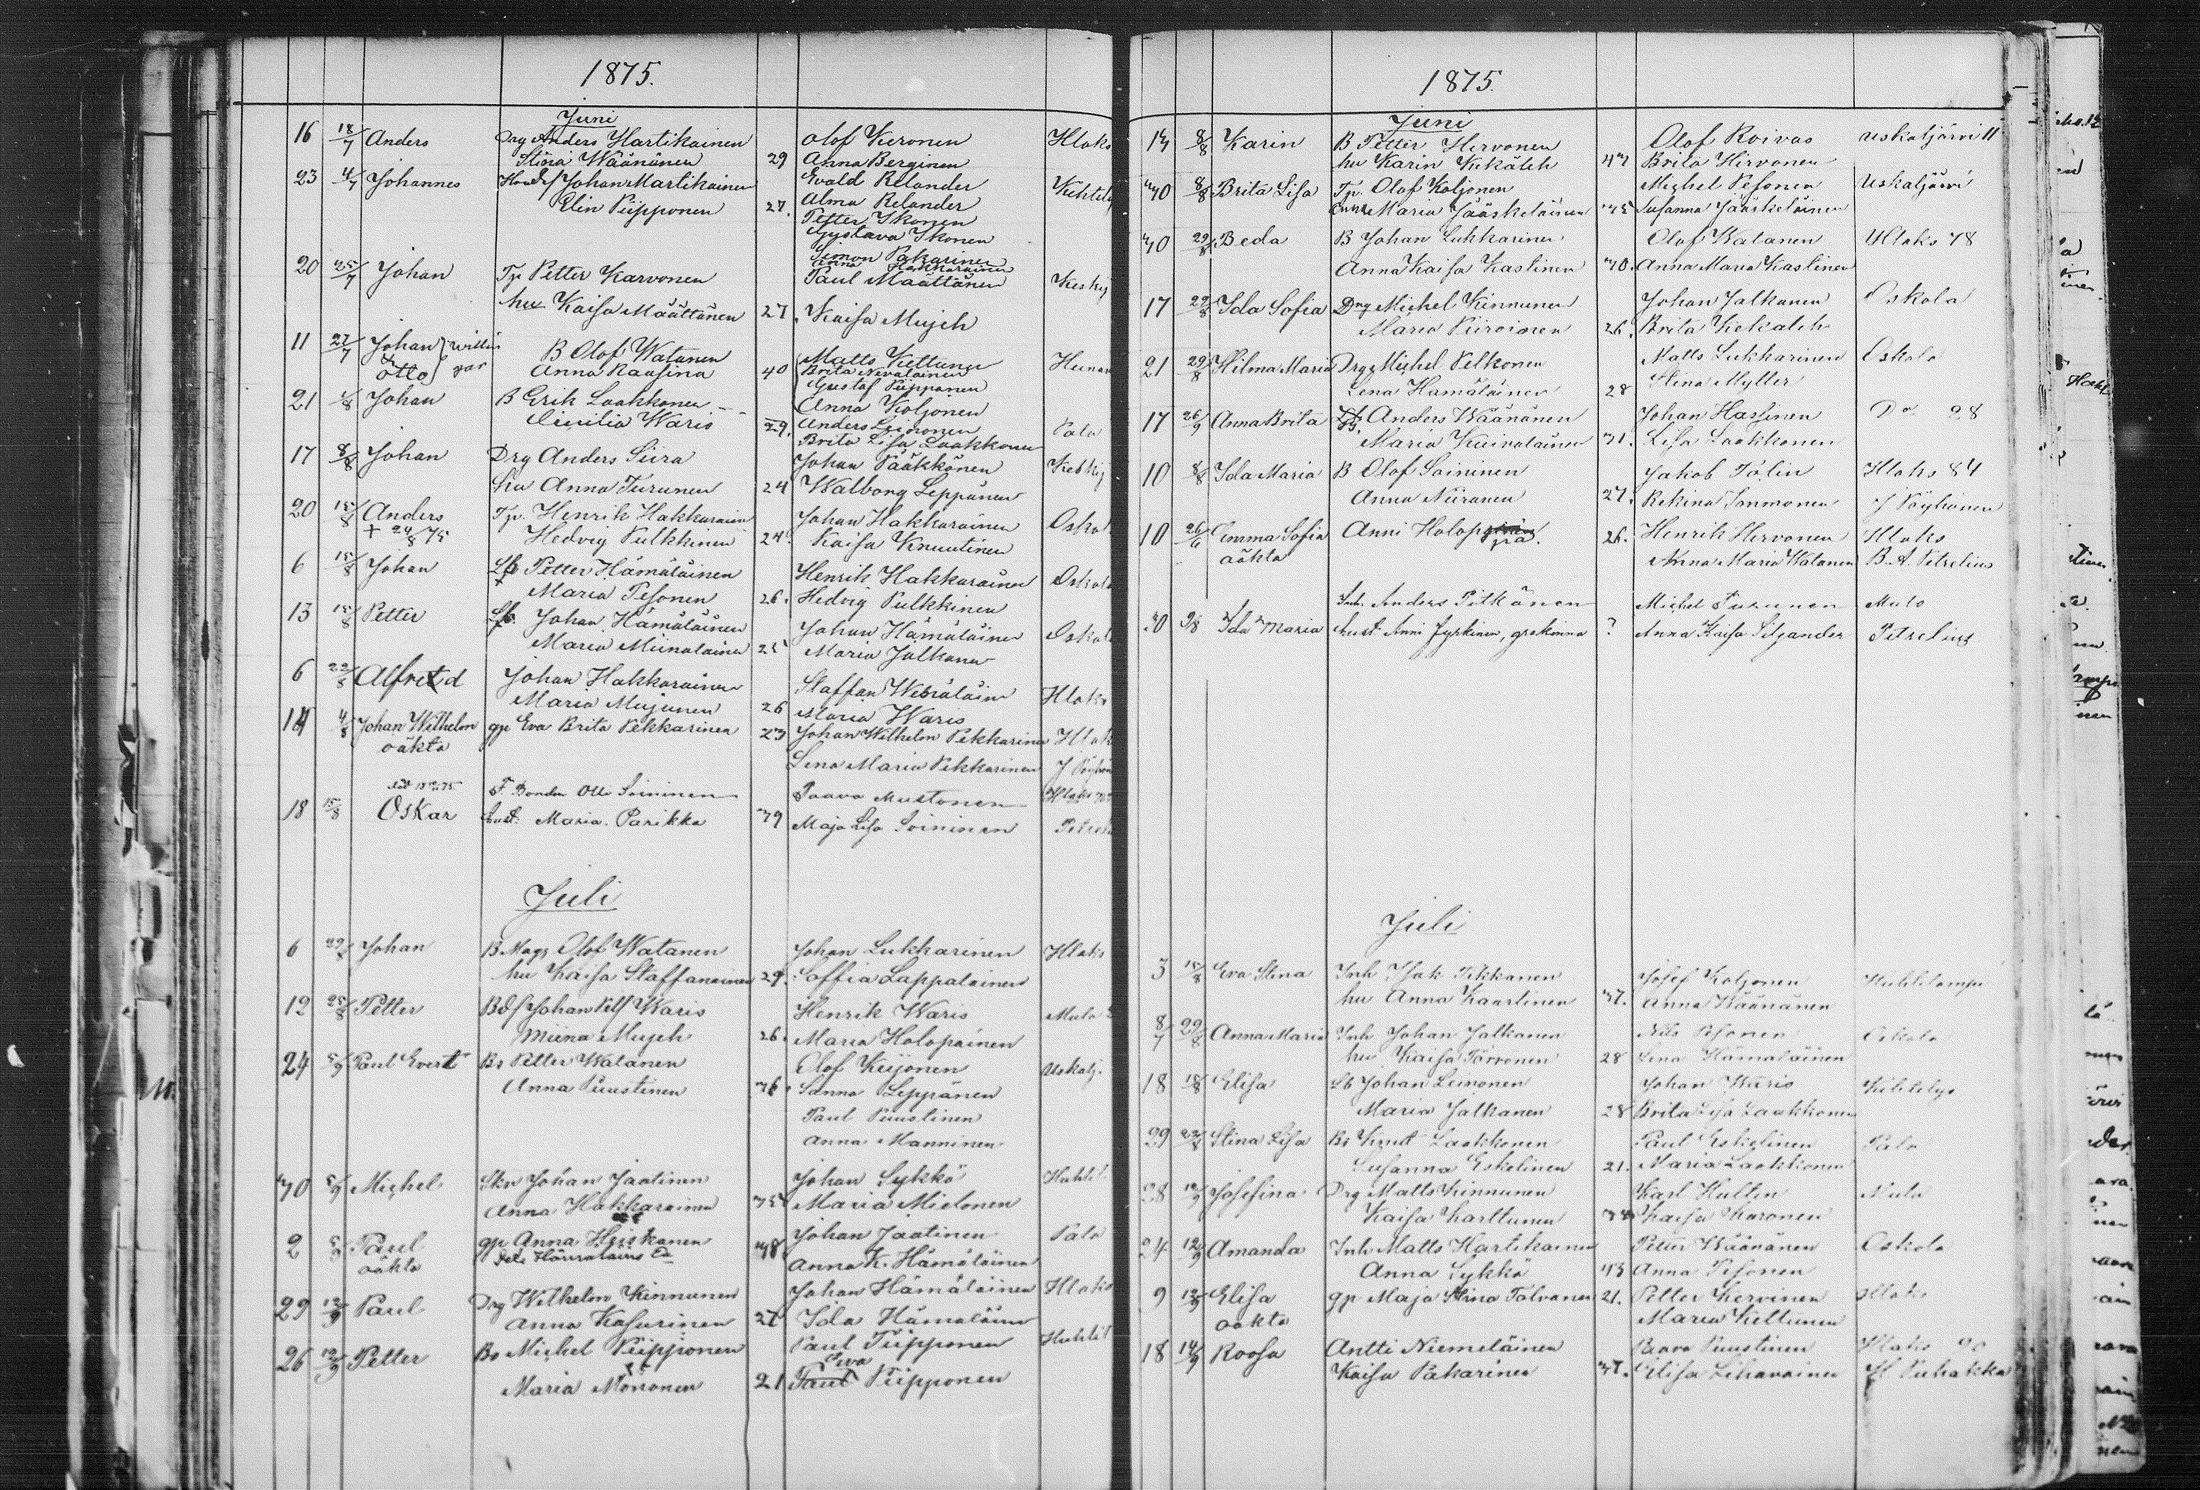 1875.
Juni
16 18/7 Anders Drg Anders Hartikainen Olof Kieronen Hlaks
Stina Wäänänen 29 Anna Berginen
23 4/7 Johannes Johan Martikainen Evald Relander Kuhtely
Elin Piipponen 27. Alma Relander
Petter Ikonen
Gustava Ikonen
Simon Pakarinen
Anna Hakkarainen
20 25/7 Johan Tp Petter Karvonen Paul Määttänen Kesky
hu Kaisa Määttänen 27. Kaisa Mujeh
11 27/7 Johan
& Otto
B Olof Watanen Matts Kettunen
Anna Raasina 40 Brita Nevalainen
Gustaf Piipponen
21 /8 Johan B Erik Laakkonen Anna Koljonen
Cicilia Waris 29. Anders Leinonen Palo
Brita Lisa Laakkonen
17 8/8 Johan Drg Anders Siira Johan Pääkkönen Kesky
hu Anna Turunen 24 Walborg Leppänen
20 15/8 Anders Tp. Henrik Hakkarainen Johan Hakkarainen Oskol
+ 24/8 75 Hedvig Pulkkinen 24. Kaisa Knuutinen
6 15/8 Johan Lb Petter Hämäläinen Henrik Hakkarainen Oskola
Maria Pesonen 26. Hedvig Pulkkinen
13 15/8 Petter Lb. Johan Hämäläinen Johan Hämäläinen Oskol
Maria Miinalainen 25 Maria Jalkanen
6 22/8 Alfred Johan Hakkarainen Staffan Hlaks
Maria Mujunen 26 Maria Waris
14 4/8 Johan Wilhelm gp Eva Brita Pekkarinen 23 Johan Wilhelm Pekkarinen Hlak
oäkta Lena Maria Pekkarinen
F. Bonden Otto Soininen Paavo Mustonen Hlaks
18 15/8 Oskar hust. Maria Parikka 39 Maja Lisa Soininen Petrel
Juli
6 29/8 Johan B Mags Olof Watanen Johan Lukkarinen Hlaks
hu Kaisa Staffanainen 29. Soffia Lappalainen
12 28/8 Petter Johan Waris Henrik Waris Mulo
Miina Mujeh 26. Maria Holopainen
24 5/9 Paul Evert Bs Petter Watanen Olof Kiijonen Uskalj.
Anna Puustinen 36. Sanna Leppänen
Paul Puustinen
Anna Manninen
30 5/9 Michel Skr Johan Jaatinen Johan Sykkö Huhtil
Anna Hakkarainen 35 Maria Mielonen
2 Paul gp Anna Heiskanen 38 Johan Jaatinen Palo
oäkta Anna K. Hämäläinen
29 12/9 Paul Drg Wilhelm Kinnunen Johan Hämäläinen Hlaks
Anna Kasurinen 27 Ida Hämäläinen
26 12/9 Petter Bs Michel Piipponen Paul Piipponen Huhtil
Maria Mononen 21 Eva Piipponen
1875.
Juni
8/8 Karin B Petter Hirvonen Olof Roivas Uskaljärvi 11
hu Karin Kekäleh 47 Brita Hirvonen
30 8/8 Brita Lisa Tp. Olof Koljonen Michel Pesonen Uskaljärvi
Anna Maria Jääskeläinen 35 Susanna Jääskeläinen
30 29/8 Beda B Johan Lukkarinen Olof Watanen Hlaks 78
Anna Kaisa Kastinen 30. Anna Maria Kastinen
17 29/8 Ida Sofia Drg Michel Kinnunen Johan Jalkanen Oskola
Maria Piiroinen 26. Brita Kekäleh
21 29/8 Hilma Maria Drg Michel Pelkonen Matts Lukkarinen Oskola
Lena Hämäläinen 28 Stina Myller
17 26/9 Anna Brita Anders Wäänänen Johan Hassinen Do 98
Maria Kaivolainen 31. Lisa Laakkonen
10 8/8 Ida Maria B Olof Soininen Jakob Tolin Hlaks 84
Anna Niiranen 27. Rekina Immonen J Pöyhönen
10 26/6 Emma Sofia Anni Holoppa. 26. Henrik Hirvonen Hlaks
oäkta Anna Maria Watanen B. A. Petrelius
Inh. Anders Pitkänen Michel Turunen Mulo
30 Ida Maria hust Anni Jyrkinen, grekinna ? Anna Kaisa Siljander Petrelius
Juli
3 15/8 Eva Stina Inh Isak Tikkanen Josef Koljonen Huhtilampi
hu Anna Kaartinen 37. Anna Wäänänen
8/7 29/8 Anna Maria Inh Johan Jalkanen Nils Pesonen Oskola
hu Kaisa Törrönen 28 Lena Hämäläinen
18 15/8 Elisa Lb Johan Leinonen Johan Waris Kuhtelys
Maria Jalkanen 28 Brita Lisa Laakkonen
29 22/8 Stina Lisa Bs Knut Laakkonen Paul Eskelinen Palo
Susanna Eskelinen 21. Maria Laakkonen
28 12/9 Josefina Drg Matts Kinnunen Karl Hulten Mulo
Kaisa Karttunen Kaisa Karonen
24 12/9 Amanda Inh Matts Hartikainen Petter Wäänänen Oskola
Anna Sykkö 43 Anna Pesonen
9 12/9 Elisa gp Maja Stina Tolvanen 21. Petter Kervinen Hlaks
oäkta Maria Kettunen
18 14/9 Roosa Antti Niemeläinen Paavo Puustinen Hlaks 90
Kaisa Pakarinen 37. Elisa Lihavainen H Puhakka